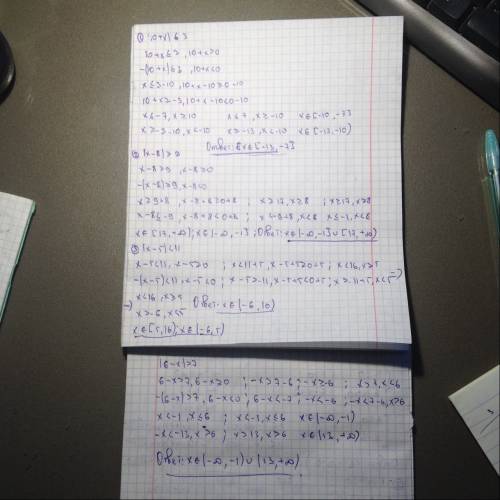 ① |10+x|≤3
10+x≤3, 10+x≥0
-(10+x)≤3, 10+x<0
x≤3-10, 10+x-10≥0-10
10+x≥-3, 10+x-10<0-10
x≤-7, x≥10 x≤7, x≥-10 x∈[-10,-7]
x≥-3-10, x<-10 x≥-13, x<-10 x∈[-13,-10)
Ответ: x∈[-13,-7]
② |x-8|≥9
x-8≥9, x-8≥0
-(x-8)≥9, x-8<0
x≥9+8, x-8+8≥0+8 ; x≥17, x≥8 ; x≥17, x≥8
x-8≤-9, x-8+8<0+8 ; x≤-9+8, x<8 x≤-1, x<8
x∈[17,+∞); x∈(-∞,-1] ; Ответ: x∈(-∞,-1]∪[17,+∞)
③ |x-5|<11
x-5<11, x-5≥0 ; x<11+5, x-5+5≥0+5 ; x<16, x≥5
-(x-5)<11, x-5<0 ; x-5>-11, x-5+5<0+5 ; x>-11+5, x<5→
→ x<16, x≥5
x>-6, x<5 Ответ: x∈(-6,10)
x∈[5,16); x∈(-6,5)
|6-x|>7
6-x>7, 6-x≥0 ; -x>7-6 ; -x≥-6 ;
-(6-x)>7, 6-x<0 ; 6-x<-7 ; -x<-6 ; -x<-7-6, x>6
x<-1, x≤6 ; x<-1, x≤6 x∈(-∞,-1)
-x<-13, x>6 ; x>13, x>6 x∈(13,+∞)
Ответ: x∈(-∞,-1)∪(13,+∞)